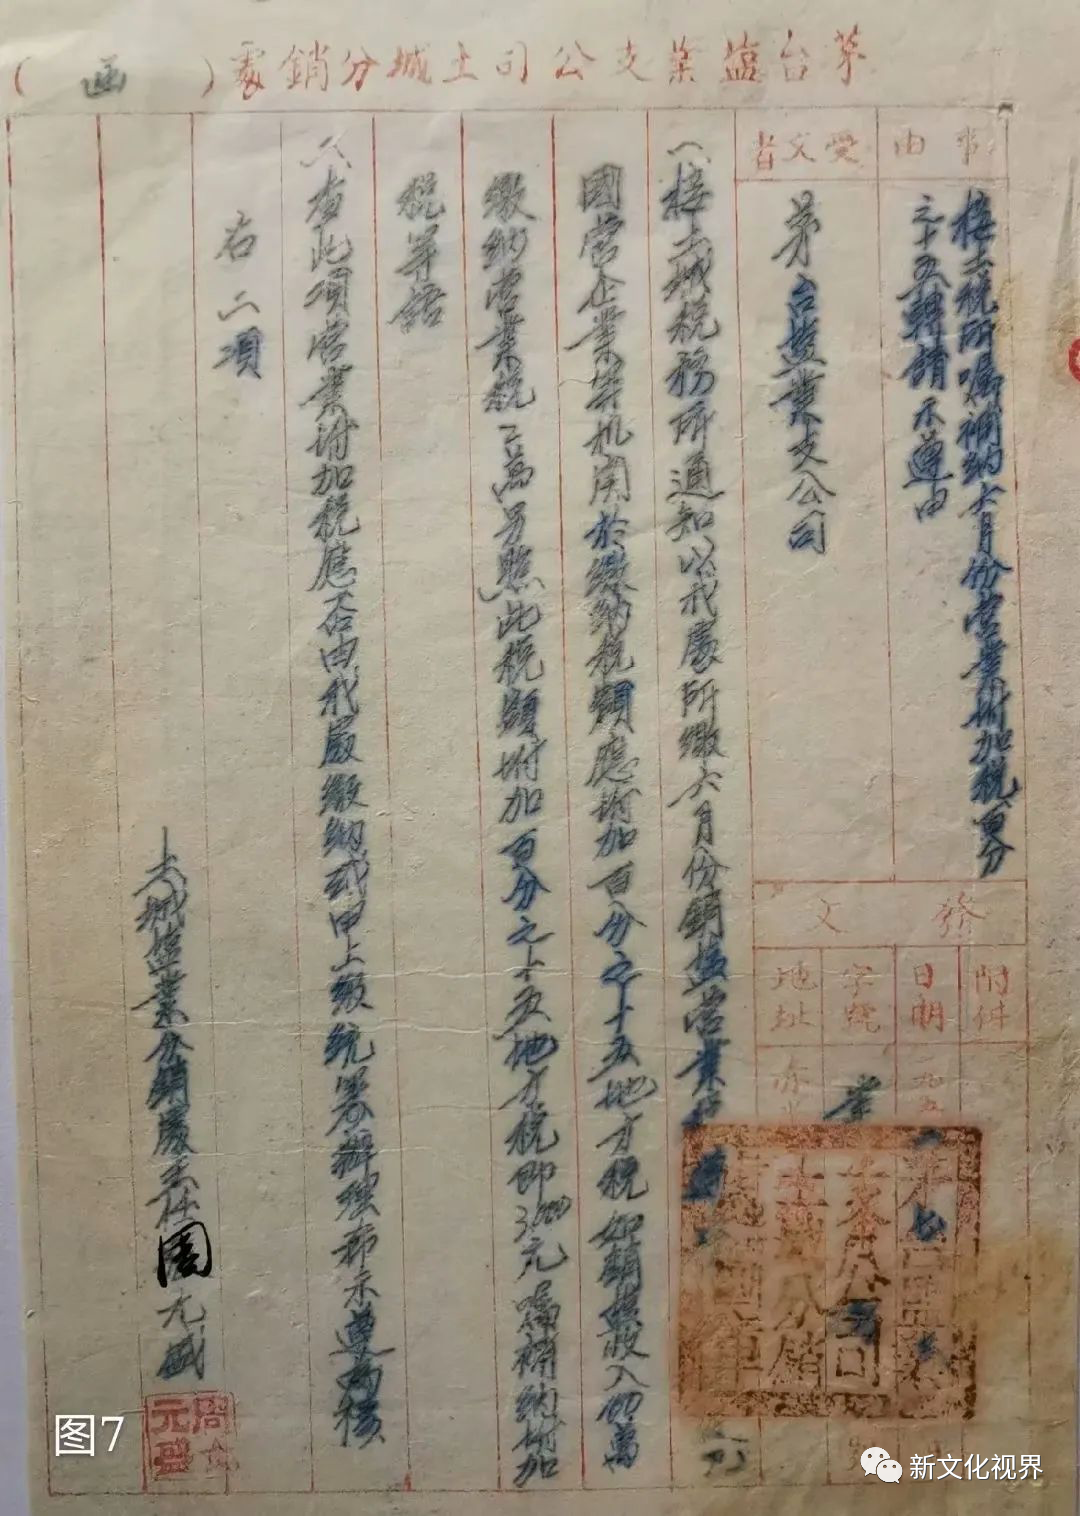 茅台盐業支公司土城分銷處（函）
事由
接土税所囑補納六月份营業附加税百分
之十五轉請示遵由
受文者
茅台盐業支公司
發文
附件
日期
字號
地址
一接土城税務所通知以我處所繳六月份銷盐营業税
國营企業等机関於繳納税額應附加百分之十五地方税如銷盐收入100萬
繳納营業税二萬另照此税額附加百分之十五地方税即3,000元囑補納附加
税等語
八查此項营業附加税應否由我處繳納或由上級統籌辦理希示遵為禱
右二項
土城盐業分銷處主任周元盛
周元盛
图7
新文化视界